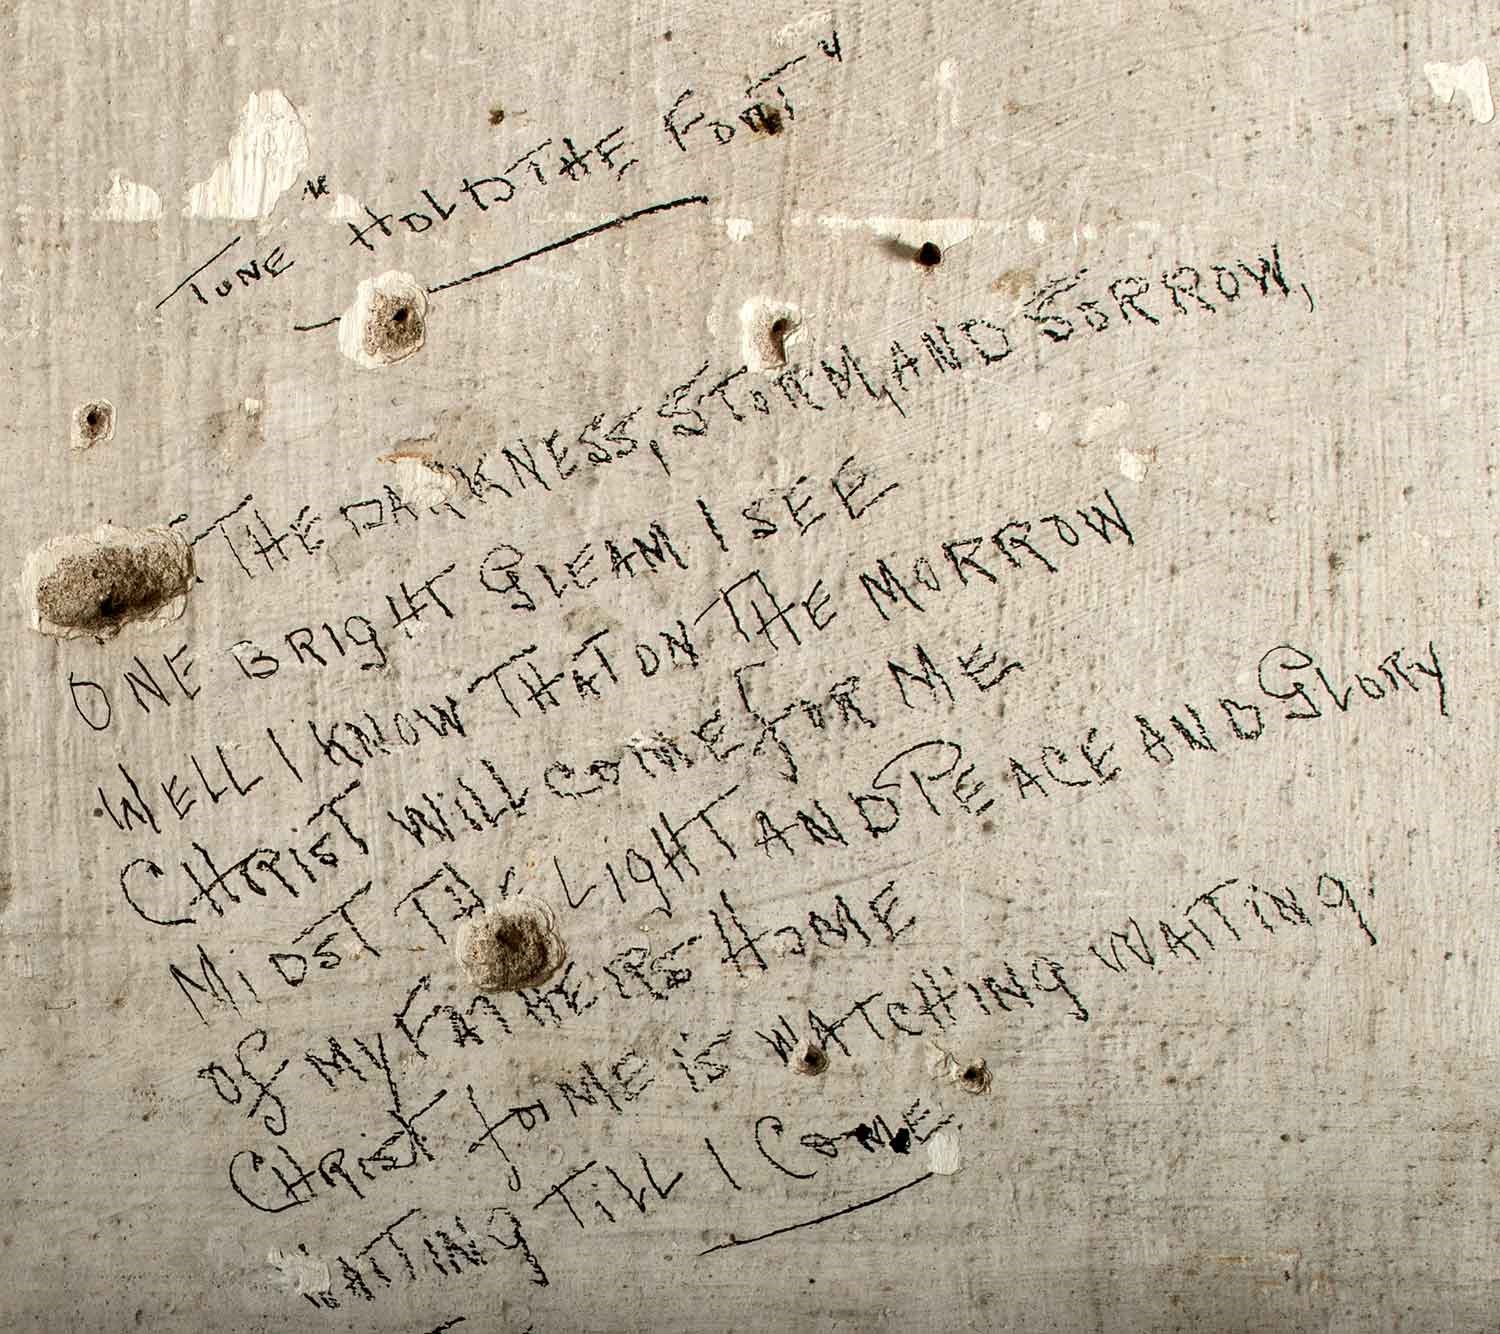 TUNE "HOLD THE FONT"
THE DARKNESS, STORM, AND SORROW,
ONE BRIGHT GLEAM I SEE
WELL I KNOW THAT ON THE MORROW
CHRIST WILL COME FOR ME
MIDST THE LIGHT AND PEACE AND GLORY
OF MY FATHERS HOME
CHRIST for ME is WATCHING WAITING
WAITING TILL I COME